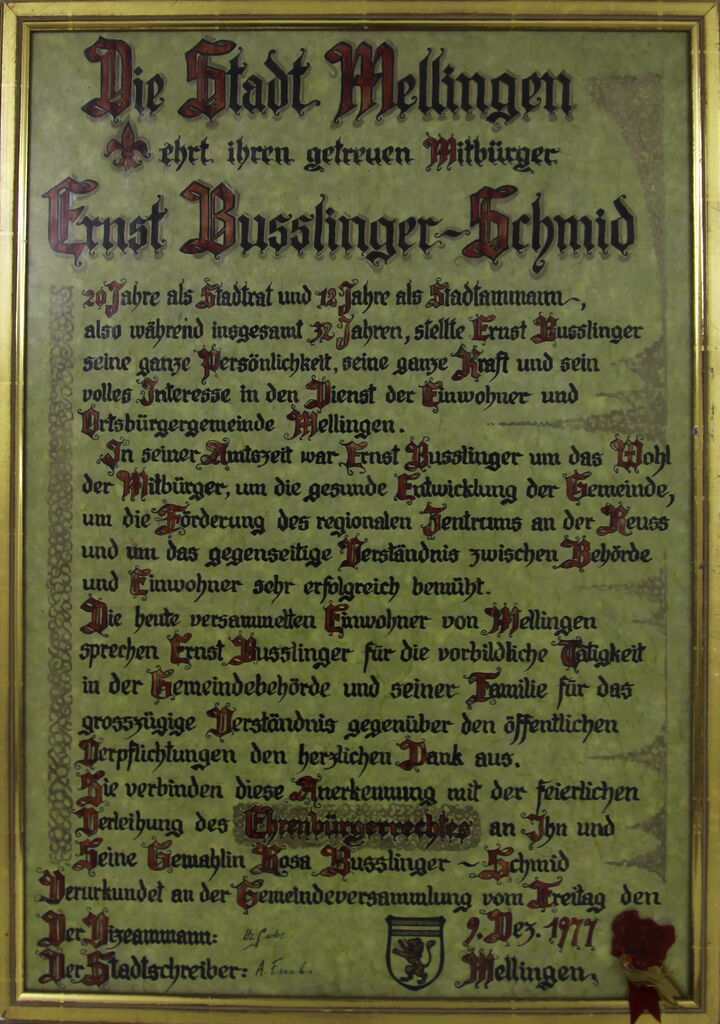 Die Stadt Mellingen
ehrt ihren getreuen Mitbürger
Ernst Busslinger-Schmid
20 Jahre als Stadtrat und 12 Jahre als Stadtammann,
also während insgesamt 32 Jahren, stellte Ernst Busslinger
seine ganze Persönlichkeit, seine ganze Kraft und sein
volles Interesse in den Dienst der Einwohner und
Ortsbürgergemeinde Mellingen.
In seiner Amtszeit war Ernst Busslinger um das Wohl
der Mitbürger, um die gesunde Entwicklung der Gemeinde,
um die Förderung des regionalen Zentrums an der Reuss
und um das gegenseitige Verständnis zwischen Behörde
und Einwohner sehr erfolgreich bemüht.
Die heute versammelten Einwohner von Mellingen
sprechen Ernst Busslinger für die vorbildliche Tätigkeit
in der Gemeindebehörde und seiner Familie für das
grosszügige Verständnis gegenüber den öffentlichen
Verpflichtungen den herzlichen Dank aus.
Sie verbinden diese Anerkennung mit der feierlichen
Verleihung des Ehrenbürgerrechtes an Ihn und
Seine Gemahlin Rosa Busslinger - Schmid
Verurkundet an der Gemeindeversammlung vom Freitag den
Der Vizeammann: 9. Dez. 1977
Der Stadtschreiber: Mellingen